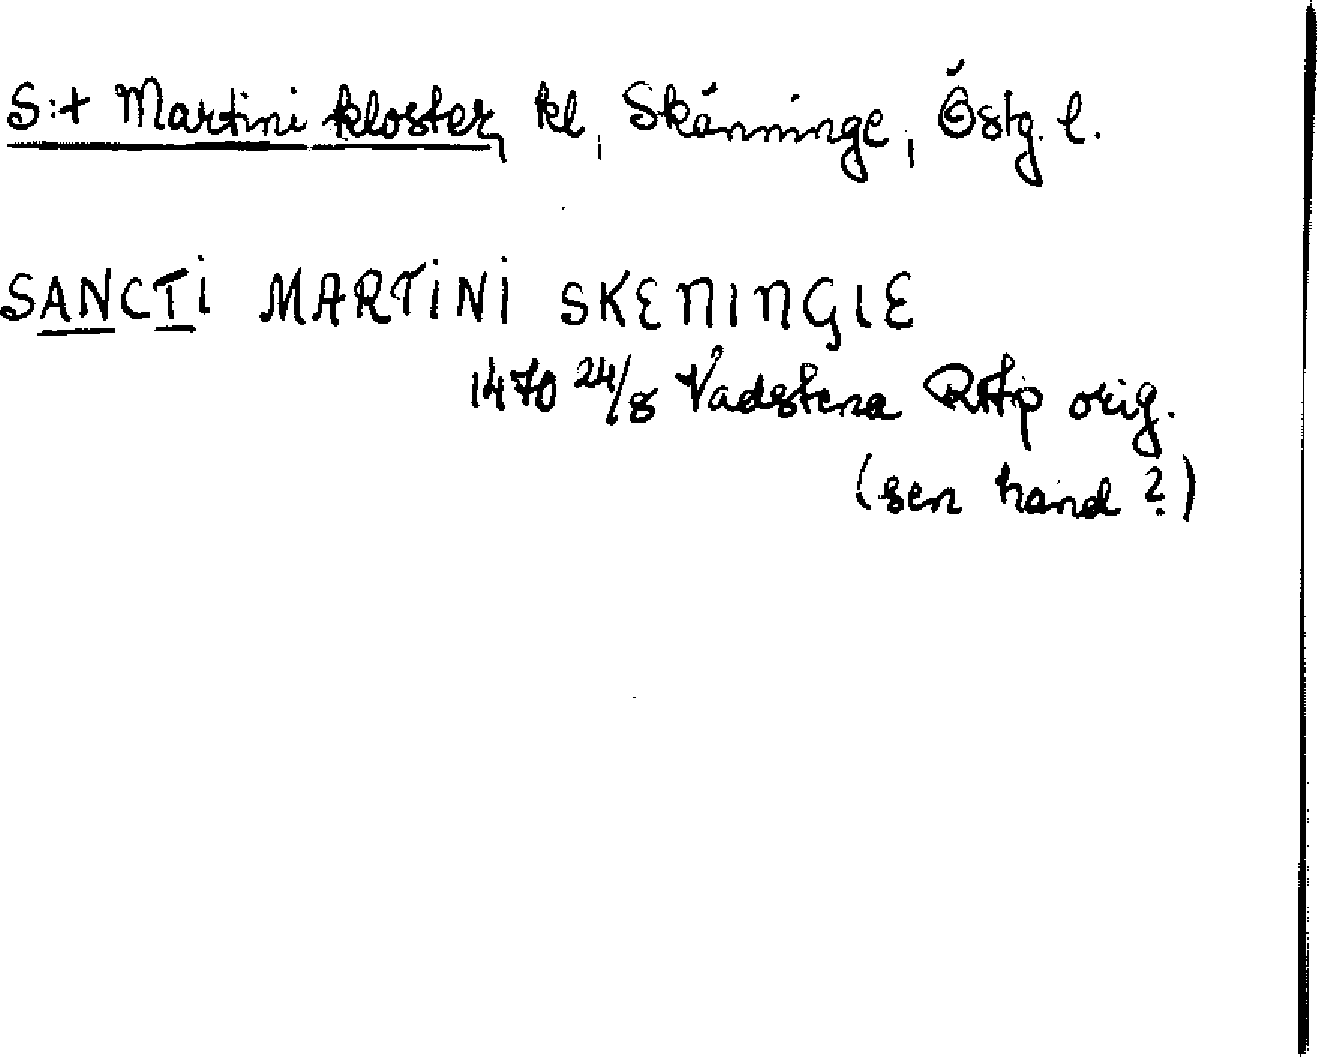 S:t Martini kloster, kl, Skänninge, Östg. l.
SANCTI MARTINI SKENINGIE
1470 24/8 Vadstena RAp orig.
(sen hand?)